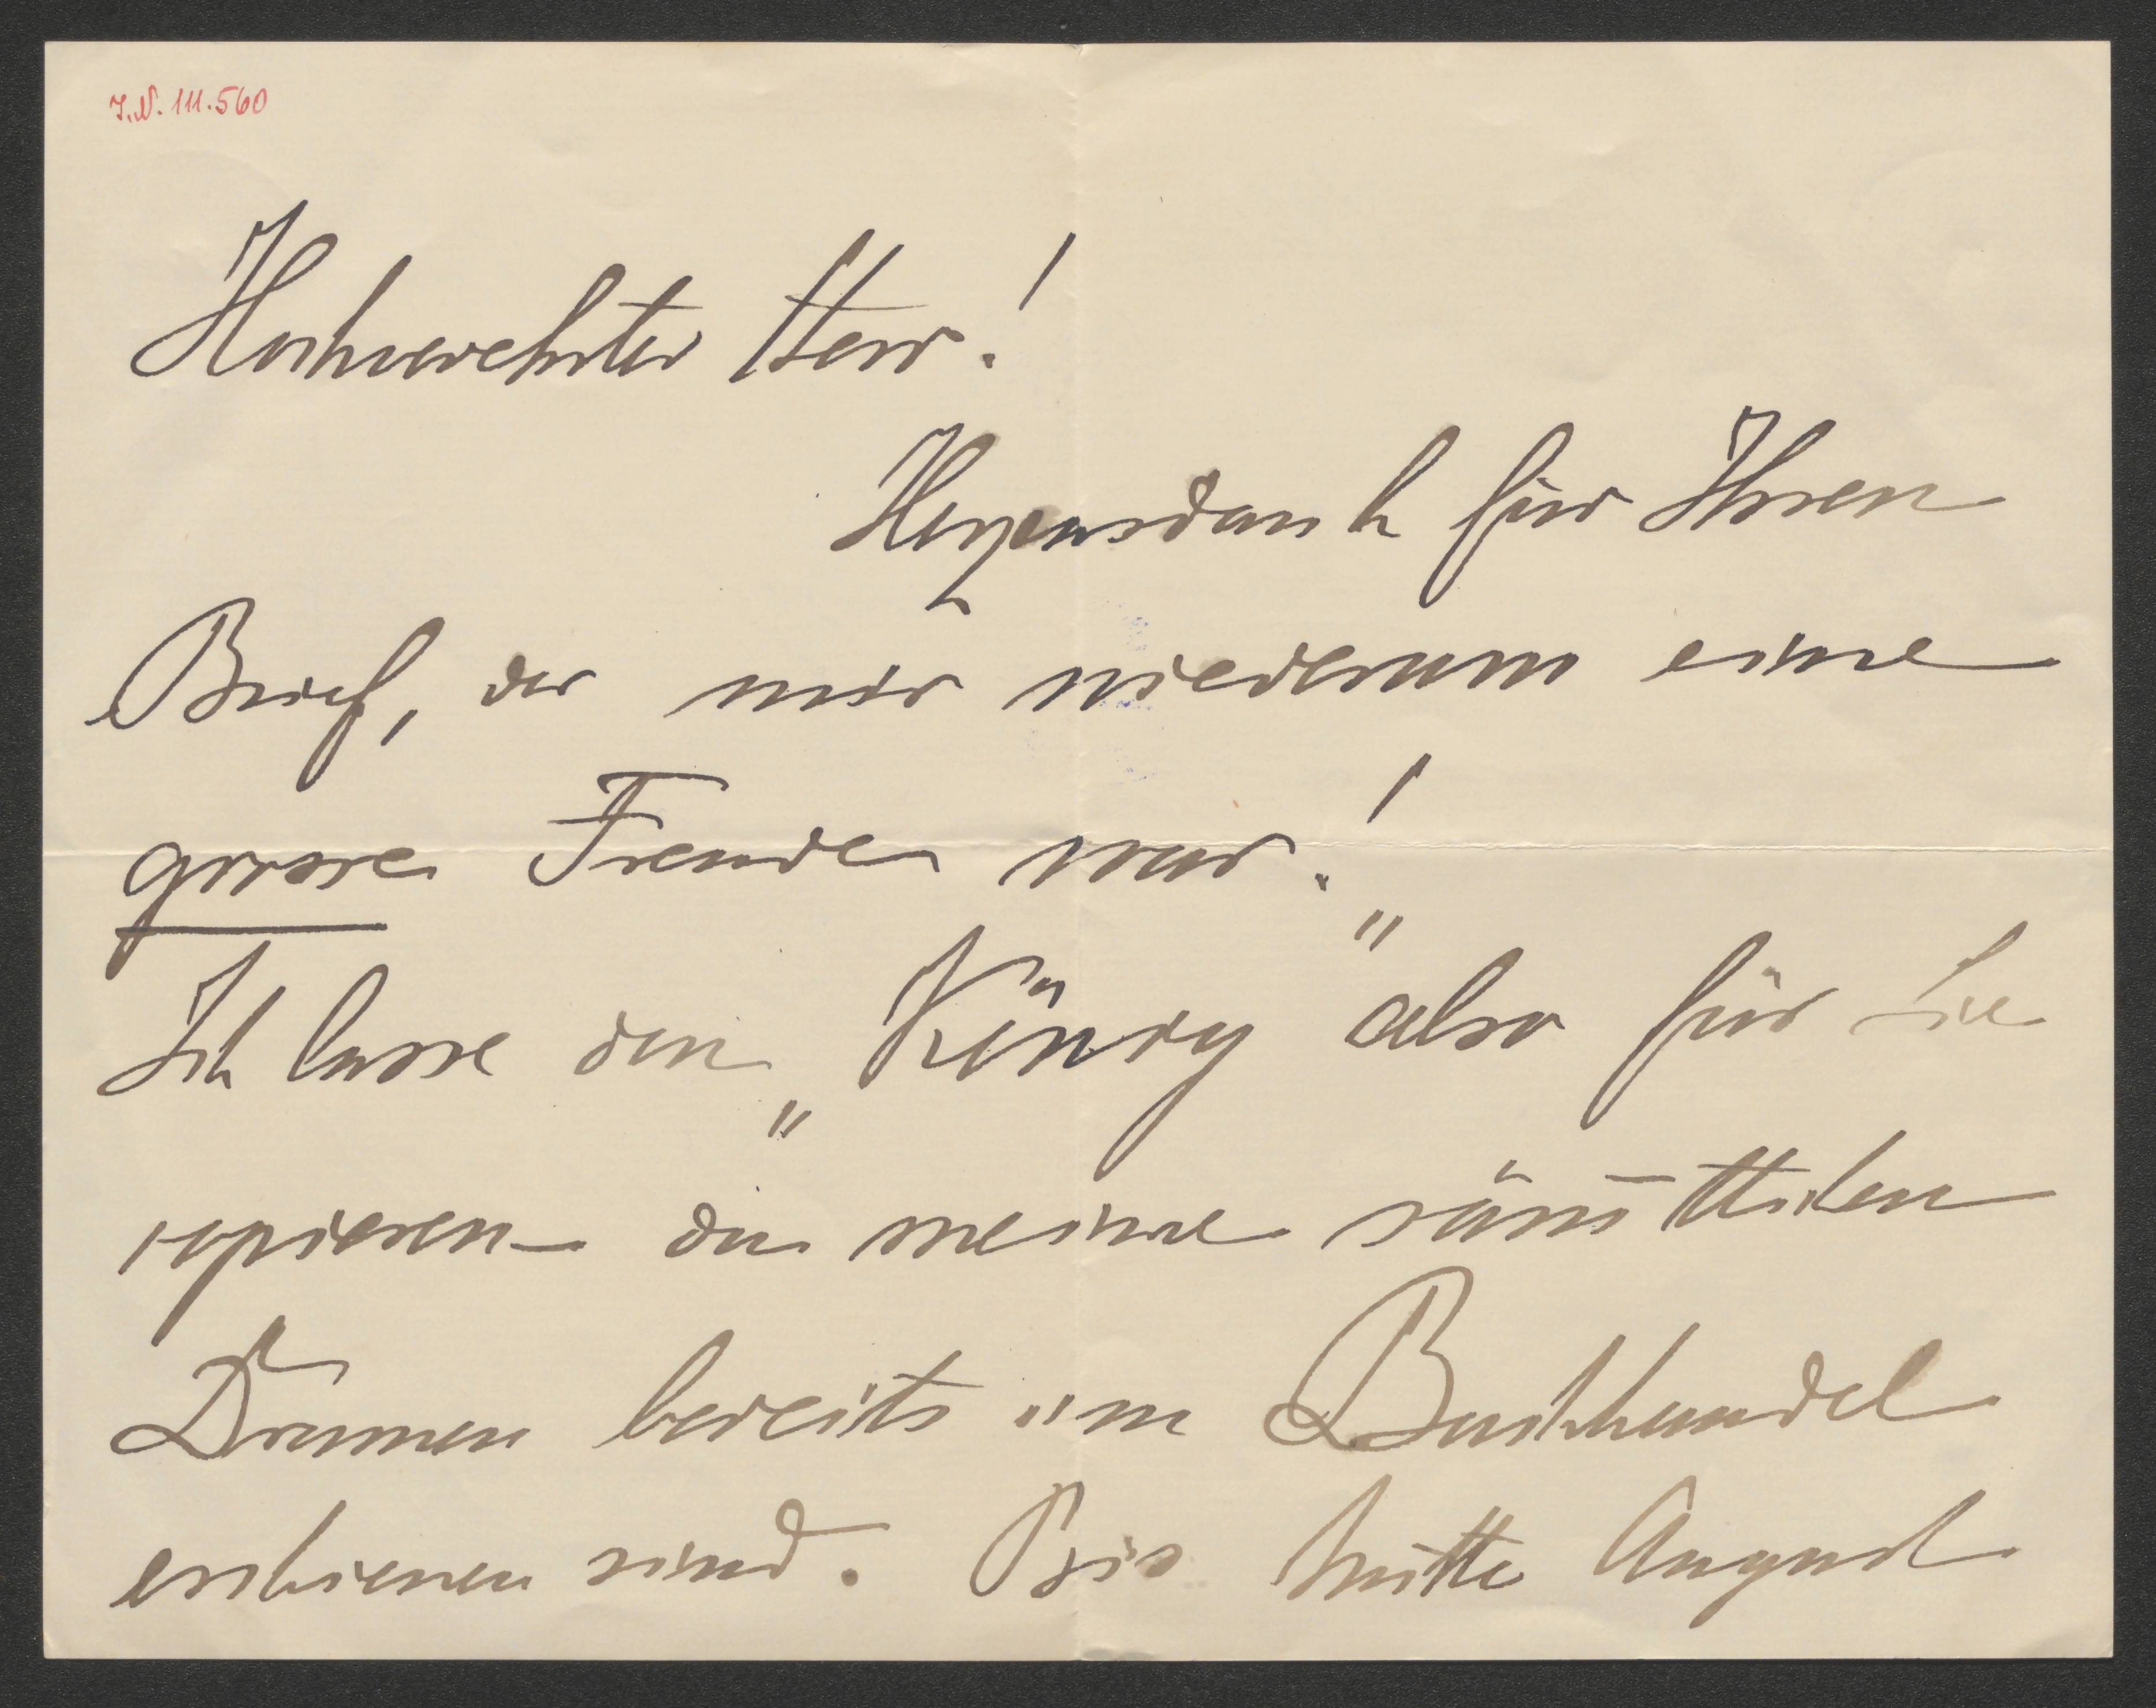 J.N. 111.560
Hochverehrter Herr!
Herzensdank für Ihren
Brief, der mir wiederum eine
grosse Freude war!
Ich lasse den „König" also für Sie
copieren – da meine säm̄tlichen
Dramen bereits im Buchhandel
erschienen sind. Bis Mitte August